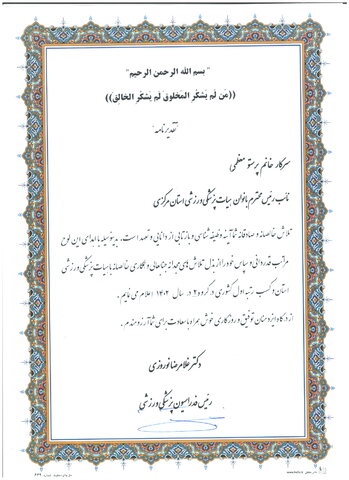 "بسم الله الرحمن الرحیم"
((مَن لَم یَشکُرِ المَخلوقَ لَم یَشکُرِ الخالِق))
"تقدیرنامه"
سرکار خانم پرستو معظمی
نائب رئیس محترم بانوان هیات پزشکی ورزشی استان مرکزی
تلاش خالصانه و صادقانه شما آینه وظیفه شناسی و بازتابی از دانایی و تعهد است، بدینوسیله با اهدای این لوح
مراتب قدردانی و سپاس خود را از بذل تلاش های مجدانه جنابعالی و همکاری خالصانه با هیات پزشکی ورزشی
استان و کسب رتبه اول کشوری در گروه 2 در سال 1402 اعلام می نمایم.
از درگاه ایزد منان توفیق و روزگاری خوش همراه با سعادت برای شما آرزومندم.
دکتر غلامرضا نوروزی
رئیس فدراسیون پزشکی ورزشی